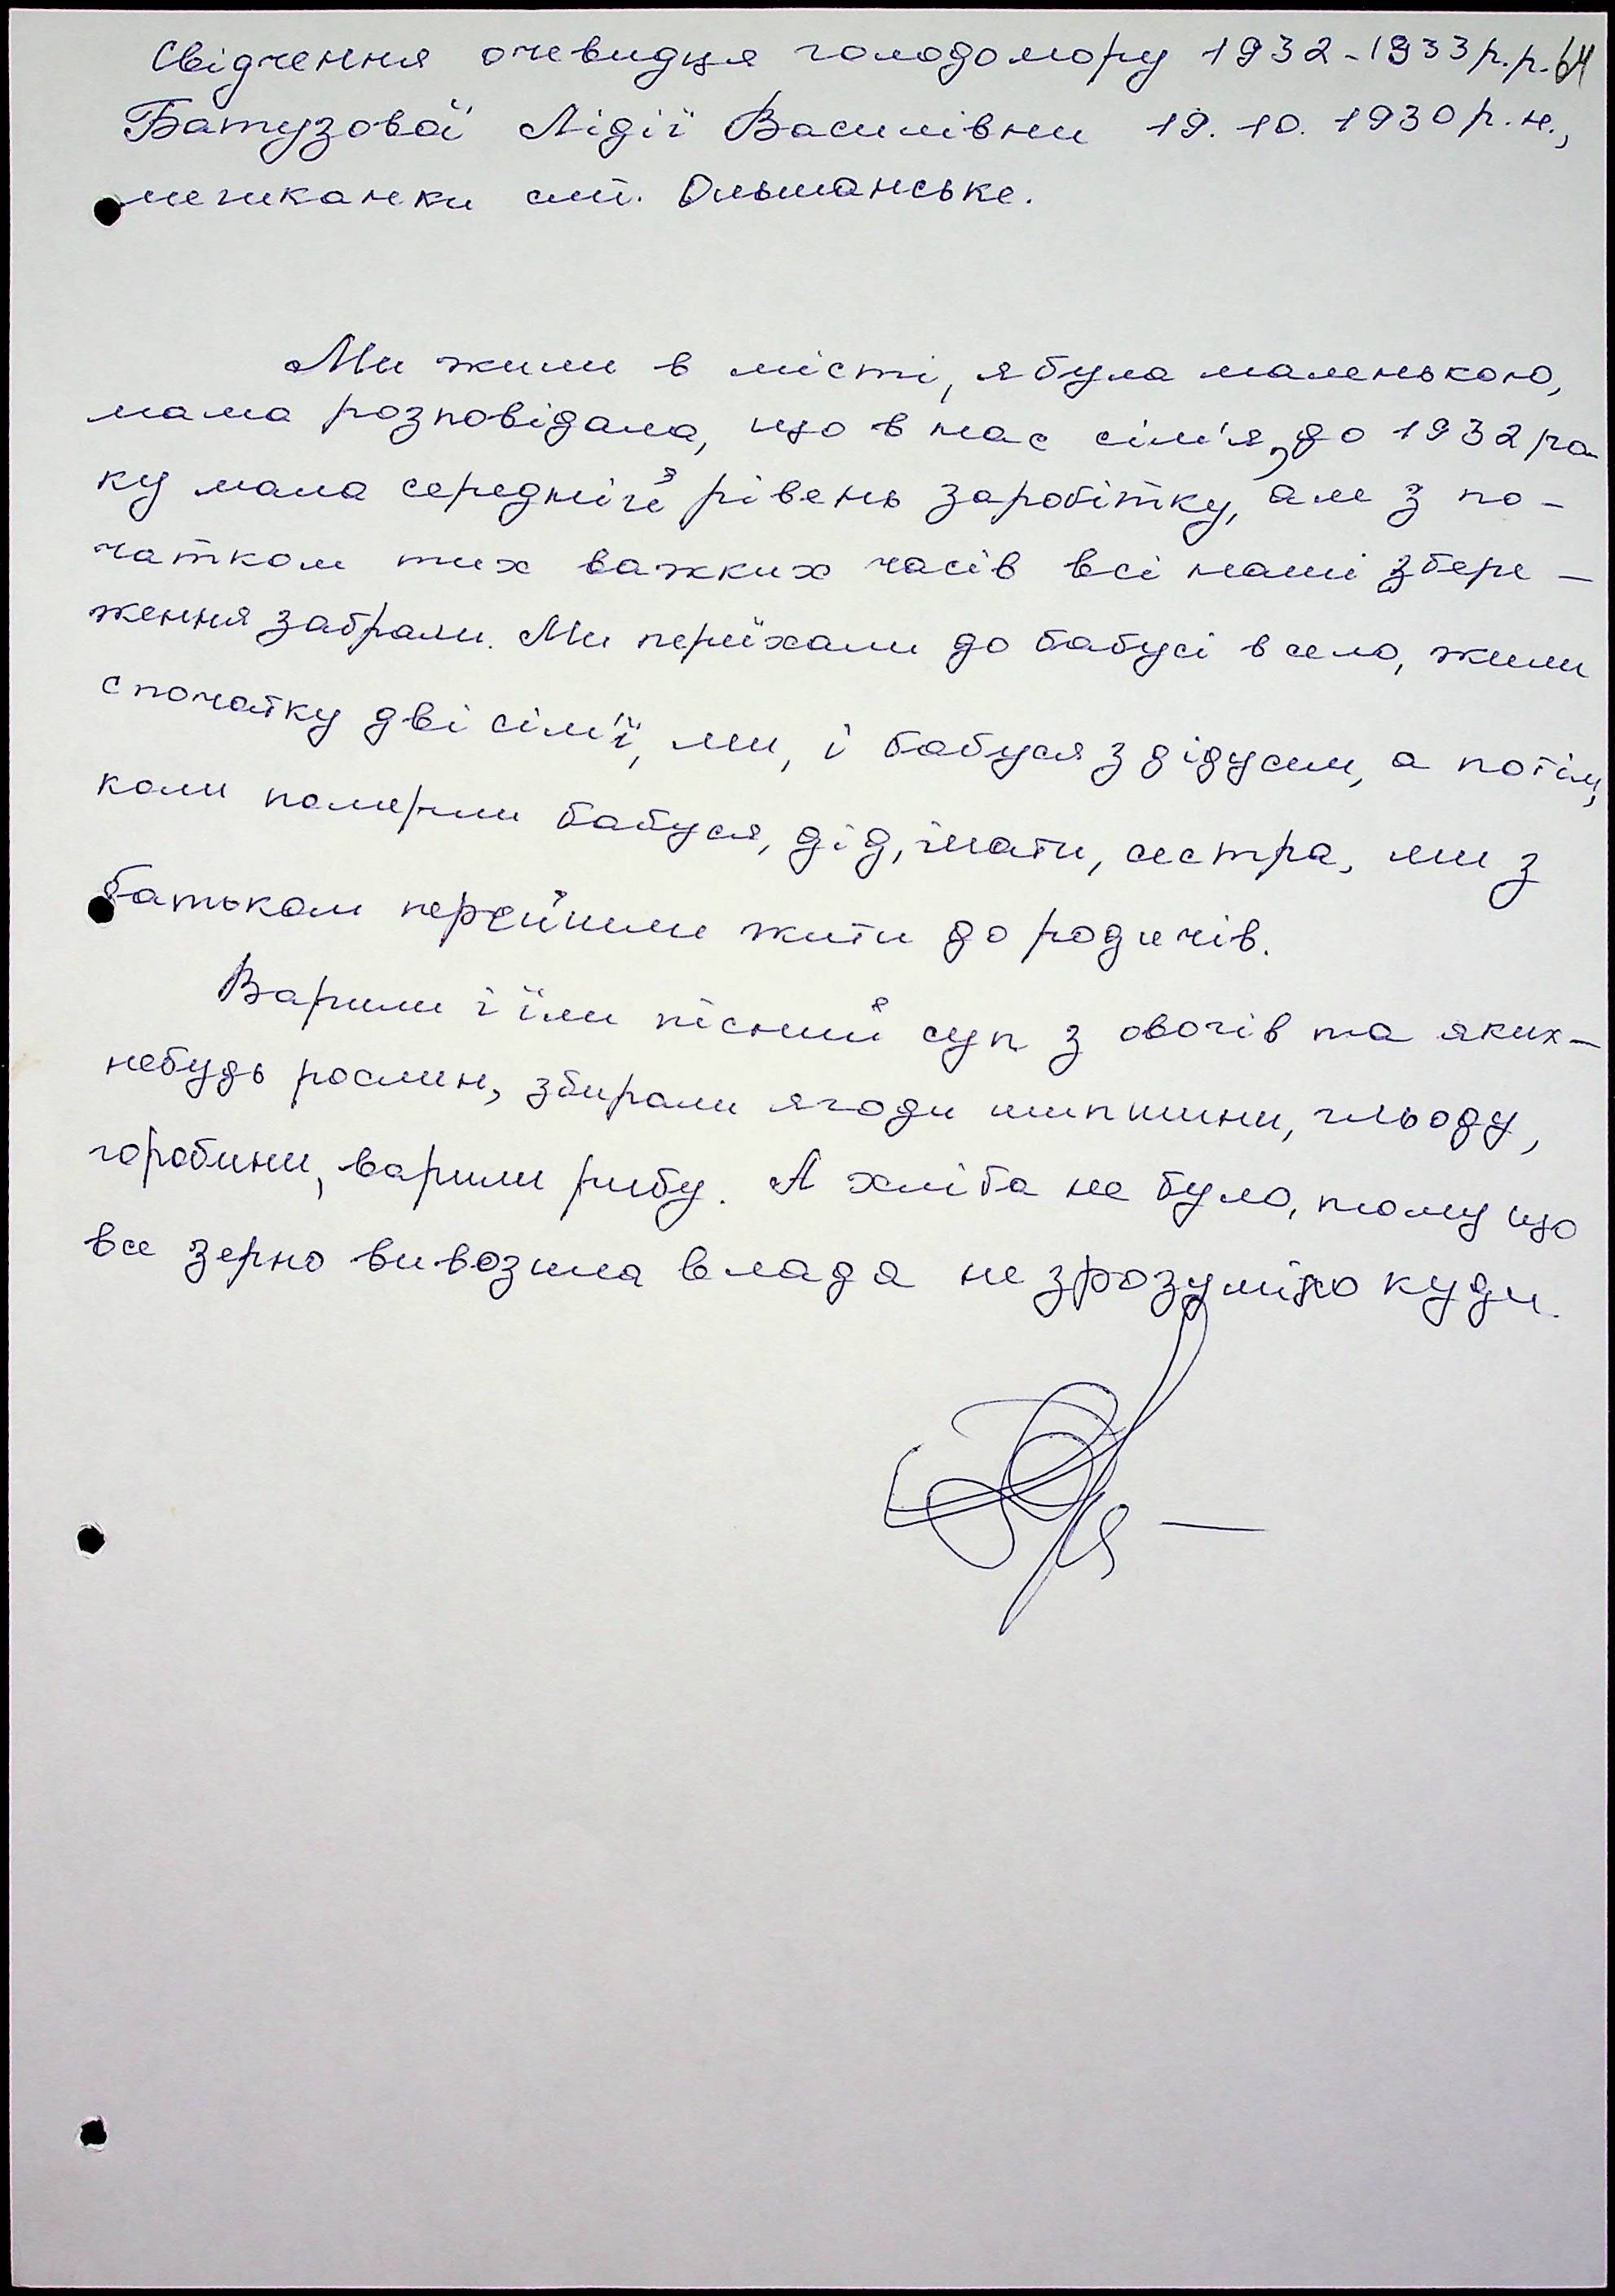 Свідчення очевидця голодомору 1932-1933 р.р. 64
Батузової Лідії Василівни 19.10.1930 р.н.,
мешканки смт. Ольшанське.
Ми жили в місті, я була маленькою,
мама розповідала, що в нас сім'я, до 1932 ро-
ку мала середній рівень заробітку, але з по-
чатком тих важких часів всі наші збере-
ження забрали. Ми переїхали до бабусі в село, жили
спочатку дві сім'ї, ми, і бабуся з дідусем, а потім,
коли померли бабуся, дід, і мати, сестра, ми з
батьком перейшли жити до родичів.
Варили і їли пісний суп з овочів та яких-
небудь рослин, збирали ягоди шипшини, гльоду,
горобини, варили рибу. А хліба не було, тому що
все зерно вивозила влада не зрозуміло куди.